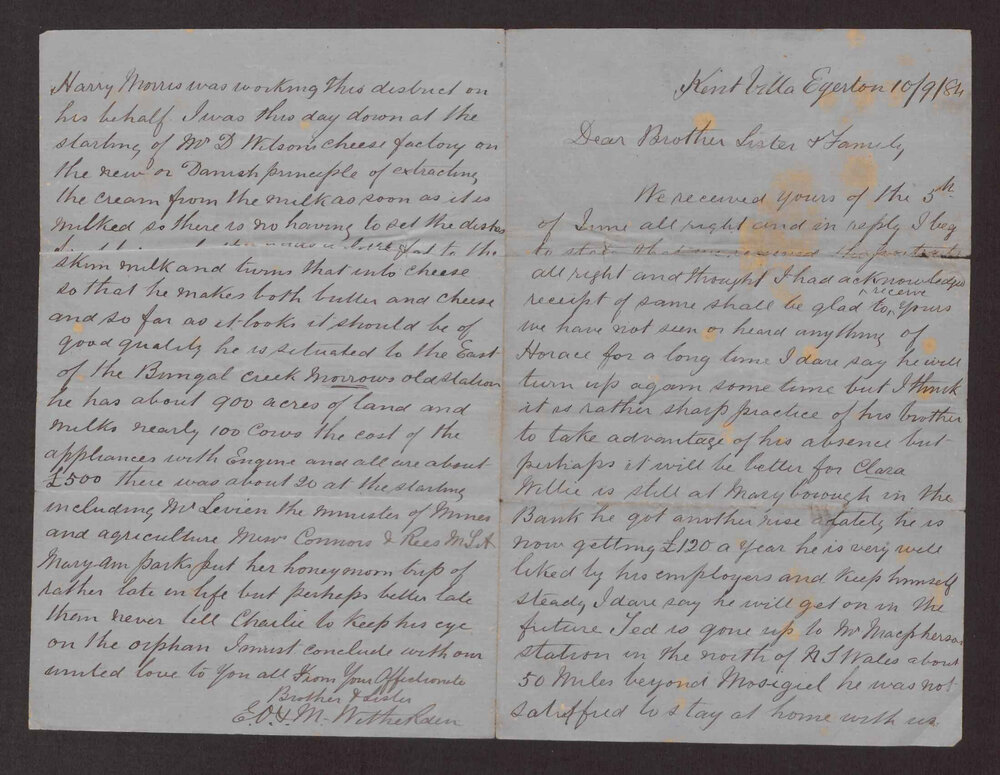 Kent Villa Egerton 10/9/84
Dear Brother Sister & Family,
We received yours of the 5th
of June all right and in reply I beg
to state that we received the
all right and thought I had acknowledged
receipt of same shall be glad to receive yours
we have not seen or heard anything of
Horace for a long time I dare say he will
turn up again some time but I think
it is rather sharp practice of his brother
to take advantage of his absence but
perhaps it will be better for Clara
Willie is still at Maryborough in the
Bank he got another rise lately he is
now getting £120 a year he is very well
liked by his employers and keep himself
steady I dare say he will get on in the
future Ted is gone up to Mr Macpherson
station in the north of N S Wales about
50 Miles beyond Mosgiel he was not
satisffied to stay at home with us
Harry Morris was working this district on
his behalf I was this day down at the
starting of Mr D Wilsons cheese factory on
the new or Danish principle of extracting
the cream from the milk as soon as it is
milked so there is no having to set the dishes
fat to the
skim milk and turns that into cheese
so that he makes both butter and cheese
and so far as it looks it should be of
good quality he is situated to the East
of the Bungal Creek Morrows old station
he has about 900 acres of land and
milks nearly 100 Cows the cost of the
appliances with Engine and all are about
£500 there was about 20 at the starting
including Mr Levien the minister of Mines
and agriculture Connors & Rees M L A
Mary Ann parks put her honeymoon of
rather late in life but perhaps better late
than never tell Charlie to keep his eye
on the orphan I must conclude with our
united love to You all From Your Affectionate
Brother & Sister
E O & M Witherden